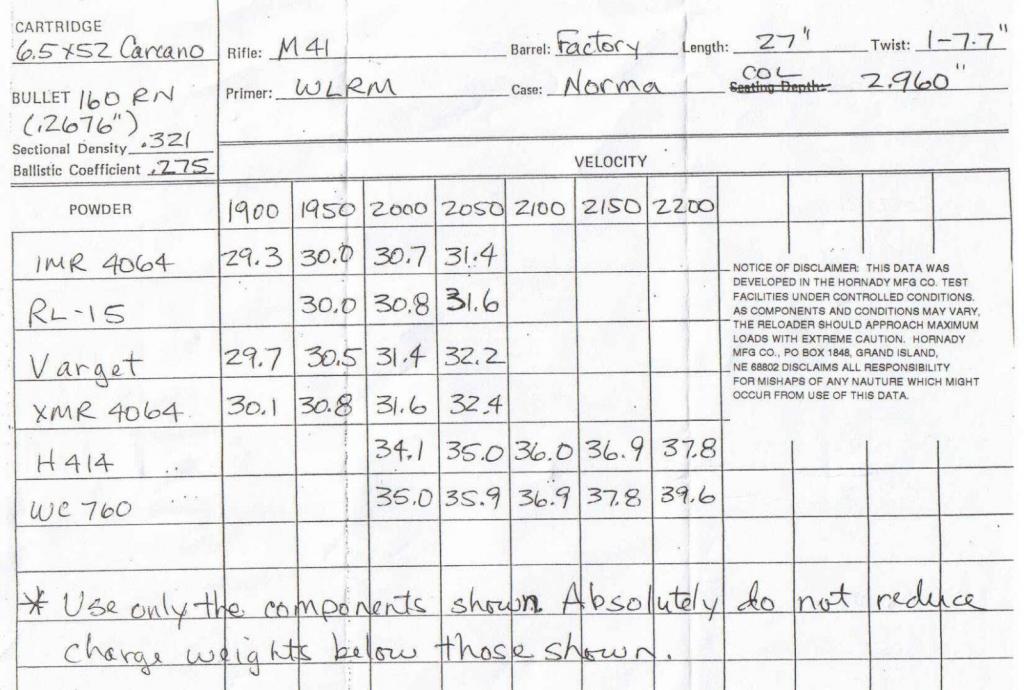 CARTRIDGE
6.5 x52 Carcano
Rifle: M 41 Barrel: Factory Length: 27" Twist: 1-7.7"
BULLET 160 RN
(.2676")
Primer: WLRM Case: Norma Seating Depth: COL 2.960"
Sectional Density .321
Ballistic Coefficient .275
VELOCITY
POWDER 1900 1950 2000 2050 2100 2150 2200
IMR 4064 29.3 30.0 30.7 31.4
RL-15 30.0 30.8 31.6
Varget 29.7 30.5 31.4 32.2
XMR 4064 30.1 30.8 31.6 32.4
H414 34.1 35.0 36.0 36.9 37.8
WC 760 35.0 35.9 36.9 37.8 39.6
NOTICE OF DISCLAIMER: THIS DATA WAS
DEVELOPED IN THE HORNADY MFG CO. TEST
FACILITIES UNDER CONTROLLED CONDITIONS.
AS COMPONENTS AND CONDITIONS MAY VARY,
THE RELOADER SHOULD APPROACH MAXIMUM
LOADS WITH EXTREME CAUTION. HORNADY
MFG CO., PO BOX 1848, GRAND ISLAND,
NE 68802 DISCLAIMS ALL RESPONSIBILITY
FOR MISHAPS OF ANY NAUTURE WHICH MIGHT
OCCUR FROM USE OF THIS DATA.
* Use only the components shown. Absolutely do not reduce
charge weights below those shown.